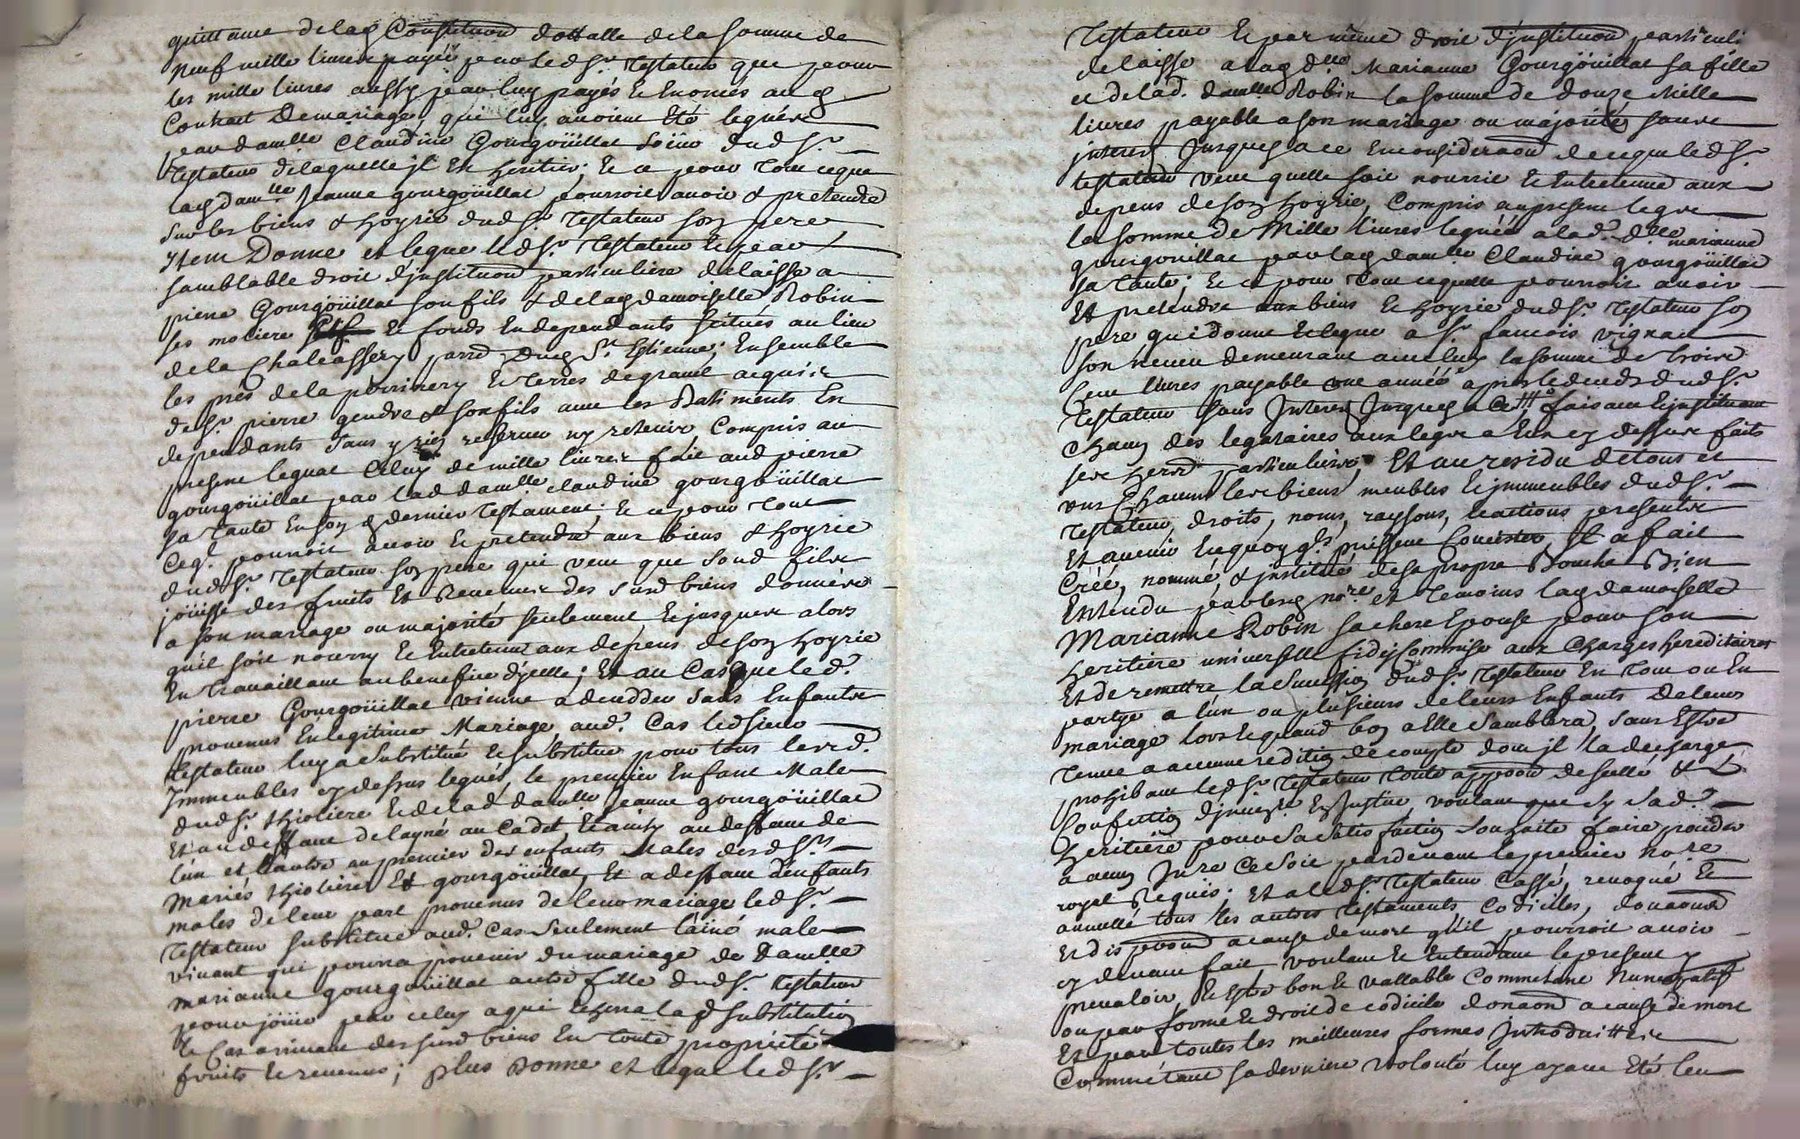 quittance de lad Constitution dottalle de la somme de
neuf mille livres payés par led Sr. Testateur que pour
les mille livres aussy par luy payés & enoncés aud
Contract de mariage, qui luy avoient été legués
par damlle Claudine Gourgoüillat sœur dud Sr.
Testateur de laquelle jl est heritier; Et ce pour tout ce que
lad damlle Jeanne gourgoüillat pourroit avoir & pretendre
sur les biens & hoyrie dud Sr. Testateur son pere
Item Donne et legue led Sr. Testateur et par
samblable droit d'jnstitution particuliere delaisse a
pierre Gourgoüillat son fils & de lad damoiselle Robin
ses & fonds En dependants scitués au lieu
de la Chaleassery parr. dud St. Estienne; Ensemble
les prés de la perrinery & Terres de gravil acquis
de Sr. pierre gendre & son fils avec les Batiments En
dependants sans y rien reserver ny retenir Compris au
present legat Celuy de mille livres fait aud pierre
gourgoüillat par lad damlle Claudine gourgoüillat
sa Tante En son d dernier Testament; Et ce pour tout
ceq. pourroit avoir & pretendre aux biens & hoyrie
dud Sr. Testateur son pere qui veut que Sond fils
joüisse des fruits Et Revenus des susd biens donnés
a son mariage ou majorité seulement & jusques alors
qu'il soit nourry & Entretenu aux depens de son hoyrie
En Travaillant au benefice d'jcelle; Et au Cas que led.
pierre Gourgoüillat vienne a decedder sans Enfants
provenus En legitime Mariage, aud. Cas led sieur
Testateur luy a substitué & substitue pour tous lesd.
Immeubles cy dessus legués, le premier Enfant Male
dud Sr. thioliere & de lad damlle Jeanne gourgoüillat
Et au deffaut de layné au Cadet, & ainsy au deffaut de
l'un et l'autre au premier des enfants Males desd Srs.
Mariés thioliere & gourgoüillat, Et a deffaut d'enfants
males de leur part provenus de leur mariage led Sr.
Testateur substitue aud. Cas seulement l'ainé male
vivant qui pourra provenir du mariage de Damlle
marianne gourgoüillat autre fille dud Sr. Testateur
pour joüir par celuy a qui echerra lad substitution
le Cas arrivant des susd biens En toute propriété
fruits & revenus; plus Donne et legue led Sr.
Testateur & par même droit d'jnstitution particuli
delaisse a lad dlle Marianne Gourgoüillat sa fille
et de lad. damlle Robin la somme de douze Mille
livres payable a son mariage ou majorité sans
jnterest jusques a ce En consideration de ce que led Sr.
testateur veut quelle soit nourrie & Entretenue aux
depens de son hoyrie, Compris au present legat
la somme de Mille livres leguée a lad. dlle marianne
gourgoüillat par lad damlle Claudine gourgoüillat
sa Tante; Et ce pour tout ce quelle pourroit avoir
Et pretendre aux biens & hoyrie dud Sr. Testateur son
pere, qui donne & legue a Sr. francois vignat
son neveu demeurant avec luy la somme de Trois
Cent livres payable une année après le deceds dud Sr.
Testateur sans Jnterest jusques a ce faisant & jnstituant
Chacun des legataires aux legs a Eux cy dessus faits
ses herrs particuliers. Et au residu de tous et
uns Chacuns les biens meubles & jmmeubles dud Sr.
Testateur, droits, noms, raysons, & actions presents
Et avenir En quoy qls. puissent Concister, Jl a fait
Créé, nommé, & jnstitué de sa propre Bouche Bien
Entendu par lesd nore. et Temoins lad damoiselle
Marianne Robin sa chere Epouse pour son
heritiere universelle fideycommise aux Charges hereditaires
Et de remettre la Succession dud Sr. Testateur En tout ou En
partye a l'un ou plusieurs de leurs Enfants de leur
mariage lors & quand bon a Elle Samblera, sans Estre
Tenue a aucune reddition de compte dont jl la decharge
prohibant led Sr. Testateur toute apposon de scellé &
Confection d'jnvere. En Justice, voulant que Sy sad.
heritiere pour sa satisfaction souhaite faire proceder
a aucun Jnre Ce soit pardevant le premier nore
royal Requis; Et a led Sr. Testateur Cassé, revoqué &
annullé tous les autres Testaments Codiciles, donaons
& disposons a cause de mort qu'il pourroit avoir
cy devant fait voulant & Entendant le present
prevaloir, & Estre bon & vallable Comme tant nuncupatif
ou par forme & droit de codicile donaon a cause de mort
Et par toutes les meilleures formes Jntroduittes
Comme etant sa derniere volonté luy ayant été leu